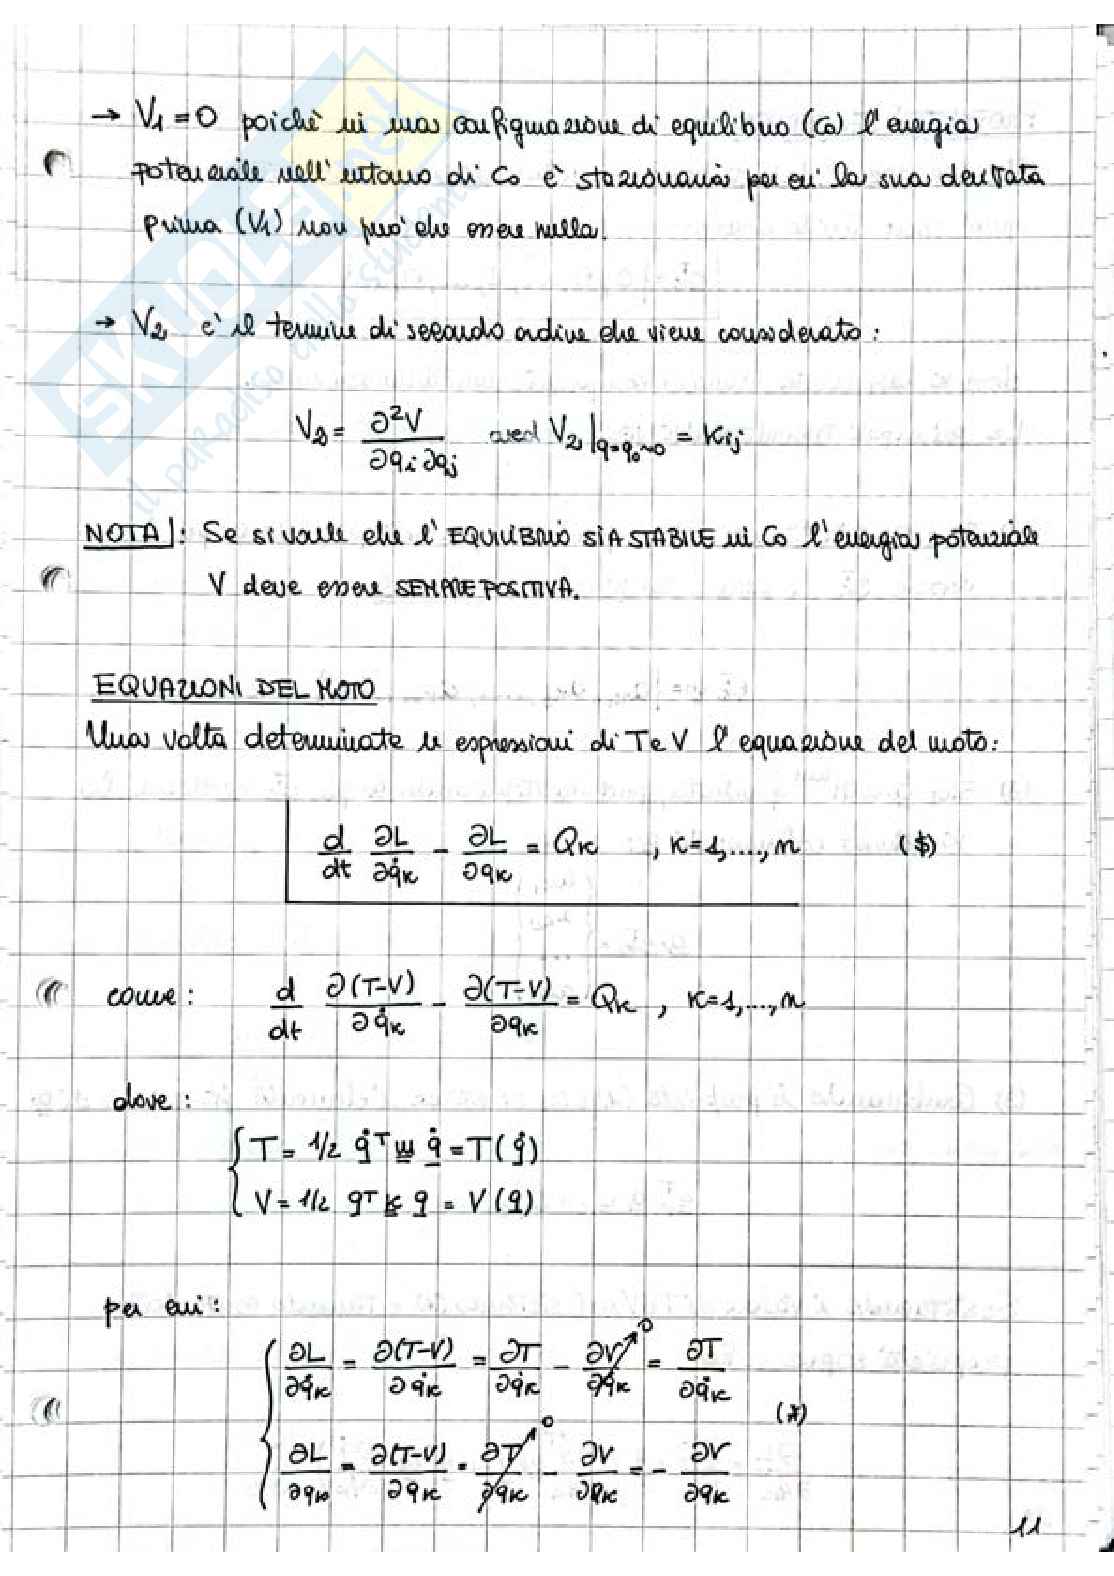 → V₁ = 0 poichè in una configurazione di equilibrio (C₀) l'energia
potenziale nell'intorno di C₀ è stazionaria per cui la sua derivata
prima (V₁) non può che essere nulla.
→ V₂ è il termine di secondo ordine che viene considerato:
V₂ = ∂²V / ∂qᵢ∂qⱼ and V₂|q=q₀~0 = Kᵢⱼ
NOTA: Se si vuole che l'EQUILIBRIO SIA STABILE in C₀ l'energia potenziale
V deve essere SEMPRE POSITIVA.
EQUAZIONI DEL MOTO
Una volta determinate le espressioni di T e V l'equazione del moto:
d/dt ∂L/∂q̇ₖ - ∂L/∂qₖ = Qₖ , K=1,....,n ($)
come: d/dt ∂(T-V)/∂q̇ₖ - ∂(T-V)/∂qₖ = Qₖ , K=1,...,n
dove:
T = 1/2 q̇ᵀ m q̇ = T(q̇)
V = 1/2 qᵀ k q = V(q)
per cui:
∂L/∂q̇ₖ = ∂(T-V)/∂q̇ₖ = ∂T/∂q̇ₖ - ∂V/∂q̇ₖ 0 = ∂T/∂q̇ₖ
(*)
∂L/∂qₖ = ∂(T-V)/∂qₖ = ∂T/∂qₖ 0 - ∂V/∂qₖ = - ∂V/∂qₖ
11
SKUOLA.net
il paradiso dello studente